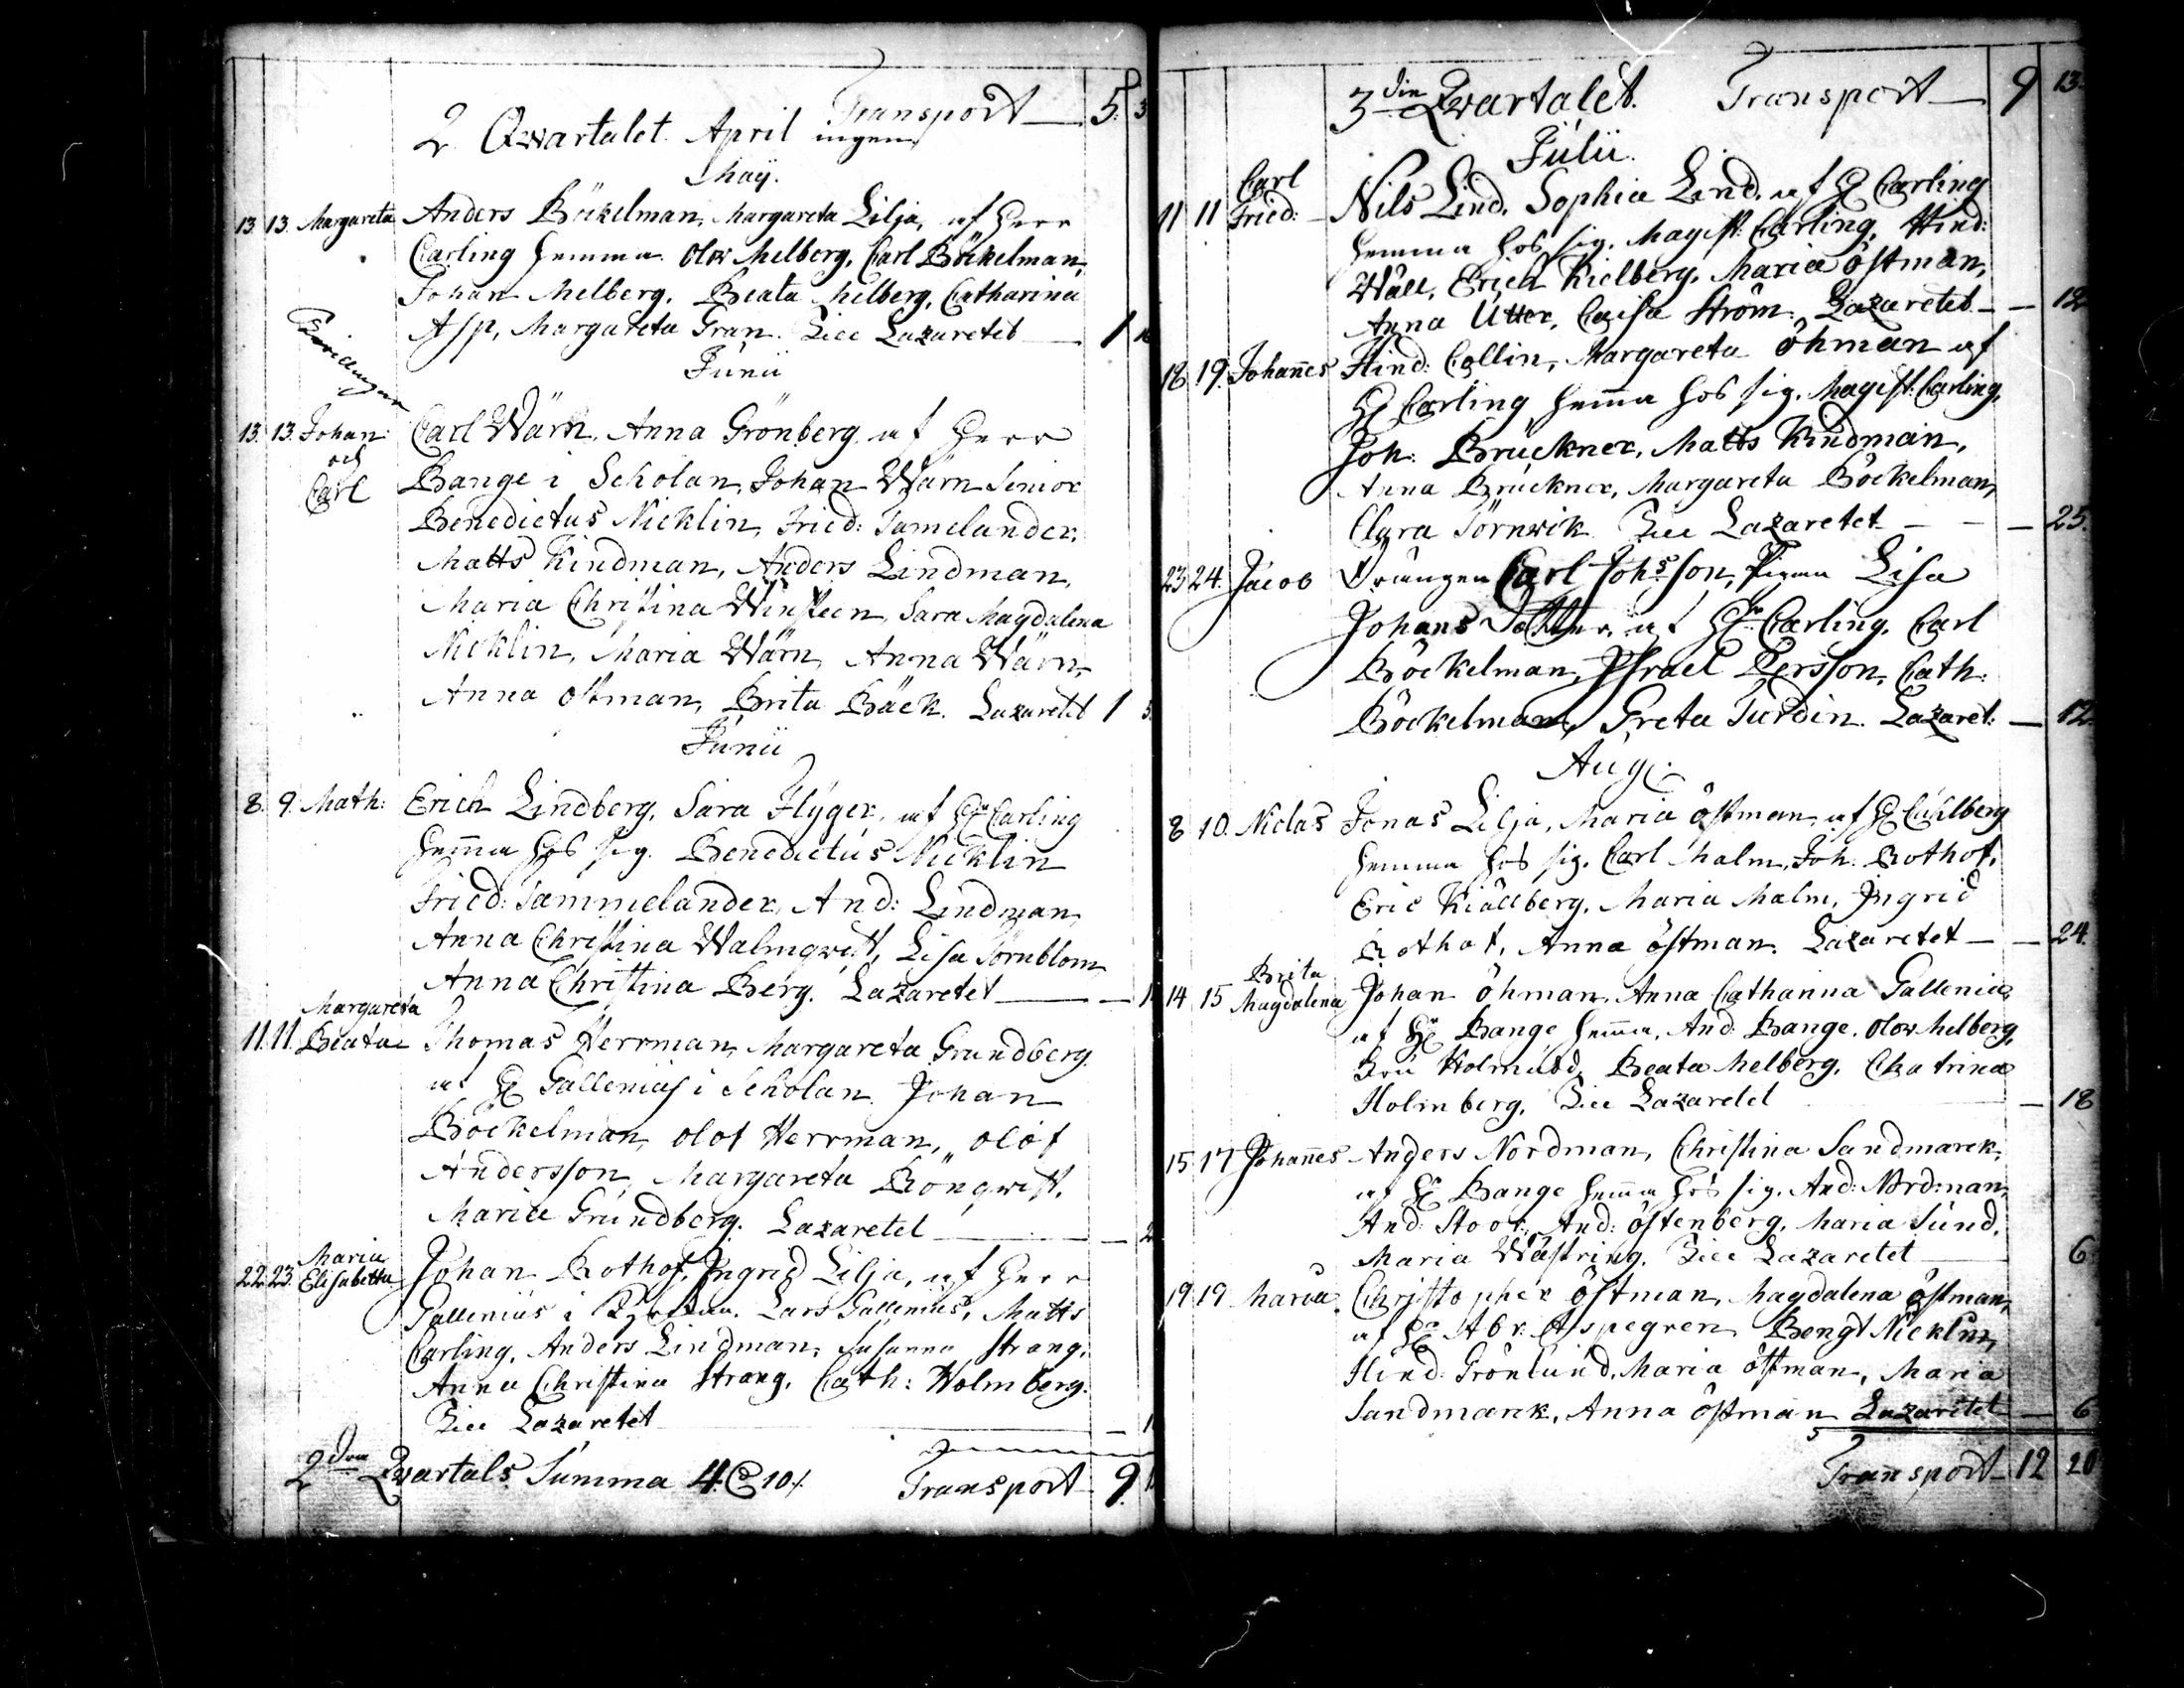 Transport 5. 3
2 Qwartalet April ingen
Maij.
13 13. Margareta Anders Bäkelman, Margareta Lilja, af Herr
Carling hemma. Olov Melberg, Carl Böckelman,
Johan Melberg. Beata Melberg, Catharina
Asp, Margareta Gran. Till Lazaretet 1
Junii
Tvillingar
13. 13. Johan och Carl Carl Wärn, Anna Grönberg af Herr
Bange i Scholan, Johan Wärn Senior
Benedictus Nicklin, Fried: Tamelander,
Matts Kindman, Anders Lindman,
Maria Christina Winsteen, Sara Magdalena
Nicklin, Maria Wärn, Anna Wärn,
Anna Östman, Brita Bäck. Lazaretet 1
Junii
8. 9. Math: Erich Lindberg, Sara Flyger, af Hr Carling
hemma hos sig. Benedictus Nicklin
Fried: Tammelander, And: Lindman,
Anna Christina Walmqwist, Lisa Törnblom,
Anna Christina Berg. Lazaretet
11. 11. Margareta Beata Thomas Herrman, Margareta Grundberg
af Hr Gallenius i Scholan Johan
Böckelman, Olof Herrman, Olof
Andersson, Margareta Rönqwist,
Maria Grundberg. Lazaretet 2
22. 23. Maria Elisabetta Johan Rothof, Ingrid Lilja, af Herr
Gallenius i Kyrkan. Lars Gallenius, Matts
Carling, Anders Lindman, Susanna Strang,
Anna Christina Strang, Cath: Holmberg.
Till Lazaretet
2dra Qvartals Summa 4. 10. Transport 9.
3die Qvartalet. Transport 9 13
Julii.
11 11 Carl Fried: Nils Lind, Sophia Lind, af Hr Carling
hemma hos sig. Magist: Carling, Hind:
Wall, Erich Kielberg, Maria Östman,
Anna Utter, Caisa Ström. Lazaretet 12
18 19. Johannes Hind: Collin, Margareta Öhman af
Hr Carling hemma hos sig. Magist: Carling,
Joh: Brückner, Matts Kindman,
Anna Brückner, Margareta Böckelman,
Clara Törnwik Till Lazaretet 25.
23 24. Jacob Drängen Carl Johsson, Pigan Lisa
Johans Dotter, af Hr Carling. Carl
Böckelman, Israel Persson, Cath:
Böckelman, Greta Turdin. Lazaret: 12
Aug:
8 10. Niclas Jonas Lilja, Maria Östman, af Hr Cahlberg
hemma hos sig. Carl Malm, Joh. Rothof,
Eric Kiällberg, Maria Malm, Ingrid
Rothof, Anna Östman. Lazaretet 24.
14 15 Brita Magdalena Johan Öhman, Anna Catharina Gallenia,
af Hr Bange hemma, And: Bange. Olov Melberg,
Holmudd, Beata Melberg, Chatrina
Holmberg, Till Lazaretet 18
15 17 Johannes Anders Nordman, Christina Sandmarck,
af Hr Bange hemma hos sig. And: Nordman,
And: Stoor, And: Östenberg, Maria Sund,
Maria Wästring. Till Lazaretet 6
19 19 Maria Christopher Östman, Magdalena Östman,
af Hr Abr: Aspegren Bengt Nicklin,
Hind: Grönlund, Maria Östman, Maria
Sandmarck, Anna Östman Lazaretet 6
Transport 12 20